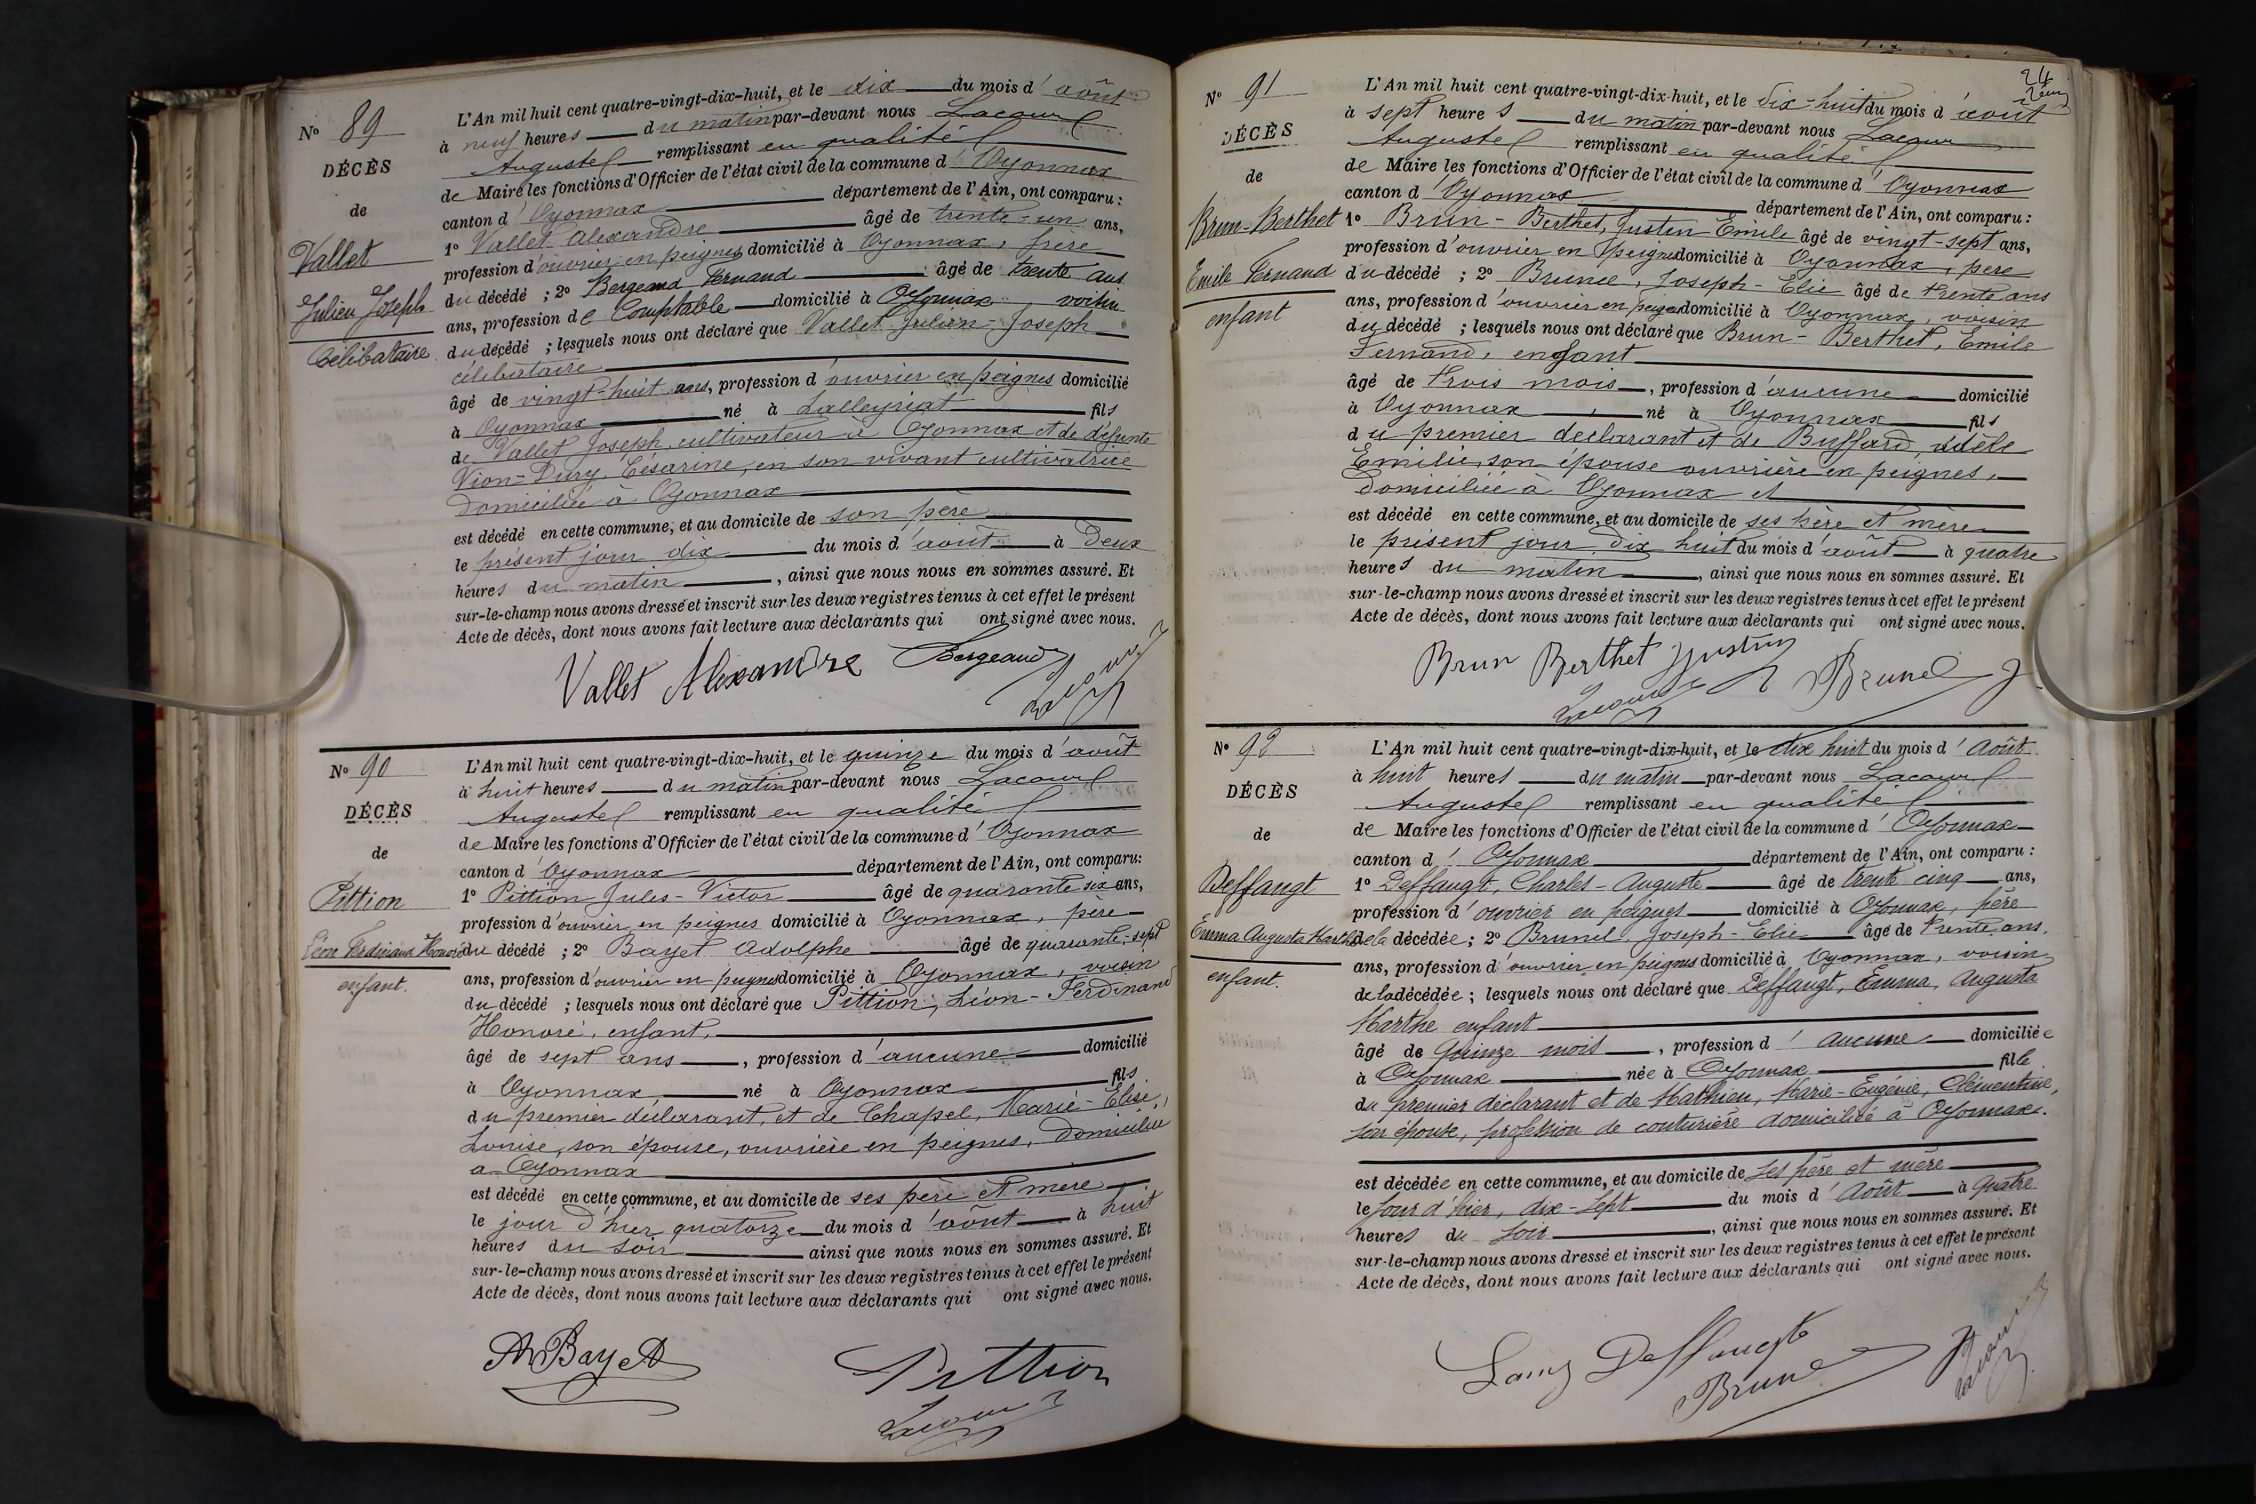 No 89
DÉCÈS
de
Vallet
Julien Joseph
Célibataire
L'An mil huit cent quatre-vingt-dix-huit, et le dix du mois d'août
à neuf heures du matin par-devant nous Lacour
Auguste remplissant en qualité
de Maire les fonctions d'Officier de l'état civil de la commune d'Oyonnax
canton d'Oyonnax département de l'Ain, ont comparu :
1o Vallet Alexandre âgé de trente-un ans,
profession d'ouvrier en peignes domicilié à Oyonnax, frère
du décédé ; 2o Bergeaud Fernand âgé de trente ans
ans, profession de Comptable domicilié à Oyonnax voisin
du décédé ; lesquels nous ont déclaré que Vallet Julien-Joseph
célibataire
âgé de vingt-huit ans, profession d'ouvrier en peignes domicilié
à Oyonnax né à Lalleyriat fils
de Vallet Joseph cultivateur à Oyonnax et de défunte
Vion-Dury Césarine, en son vivant cultivatrice
domiciliée à Oyonnax
est décédé en cette commune, et au domicile de son père
le présent jour dix du mois d'août à deux
heures du matin, ainsi que nous nous en sommes assuré. Et
sur-le-champ nous avons dressé et inscrit sur les deux registres tenus à cet effet le présent
Acte de décès, dont nous avons fait lecture aux déclarants qui ont signé avec nous.
Vallet Alexandre Bergeaud Lacour
No 90
DÉCÈS
de
Pittion
Léon Ferdinand Honoré
enfant.
L'An mil huit cent quatre-vingt-dix-huit, et le quinze du mois d'août
à huit heures du matin par-devant nous Lacour
Auguste remplissant en qualité
de Maire les fonctions d'Officier de l'état civil de la commune d'Oyonnax
canton d'Oyonnax département de l'Ain, ont comparu :
1o Pittion Jules-Victor âgé de quarante six ans,
profession d'ouvrier en peignes domicilié à Oyonnax, père
du décédé ; 2o Bayet Adolphe âgé de quarante-sept
ans, profession d'ouvrier en peignes domicilié à Oyonnax, voisin
du décédé ; lesquels nous ont déclaré que Pittion, Léon-Ferdinand
Honoré, enfant,
âgé de sept ans, profession d'aucune domicilié
à Oyonnax né à Oyonnax fils
du premier déclarant, et de Chapel, Marie-Elise,
Louise, son épouse, ouvrière en peignes, domiciliée
à Oyonnax
est décédé en cette commune, et au domicile de ses père et mère
le jour d'hier quatorze du mois d'août à huit
heures du soir ainsi que nous nous en sommes assuré. Et
sur-le-champ nous avons dressé et inscrit sur les deux registres tenus à cet effet le présent
Acte de décès, dont nous avons fait lecture aux déclarants qui ont signé avec nous.
Bayet Pittion
Lacour
24
No 91
DÉCÈS
de
Brun-Berthet
Emile Fernand
enfant
L'An mil huit cent quatre-vingt-dix-huit, et le dix-huit du mois d'août
à sept heures du matin par-devant nous Lacour
Auguste remplissant en qualité
de Maire les fonctions d'Officier de l'état civil de la commune d'Oyonnax
canton d'Oyonnax département de l'Ain, ont comparu :
1o Brun-Berthet, Justin Emile âgé de vingt-sept ans,
profession d'ouvrier en peignes domicilié à Oyonnax, père
du décédé ; 2o Brunel, Joseph-Elie âgé de trente ans
ans, profession d'ouvrier en peignes domicilié à Oyonnax, voisin
du décédé ; lesquels nous ont déclaré que Brun-Berthet, Emile
Fernand, enfant
âgé de trois mois, profession d'aucune domicilié
à Oyonnax, né à Oyonnax fils
du premier déclarant et de Buffard, Adèle
Emilie, son épouse ouvrière en peignes,
domiciliée à Oyonnax et
est décédé en cette commune, et au domicile de ses père et mère
le présent jour dix huit du mois d'août à quatre
heures du matin, ainsi que nous nous en sommes assuré. Et
sur-le-champ nous avons dressé et inscrit sur les deux registres tenus à cet effet le présent
Acte de décès, dont nous avons fait lecture aux déclarants qui ont signé avec nous.
Brun Berthet Justin Brunel J
Lacour
No 92
DÉCÈS
de
Deffaugt
Emma Augusta Marthe
enfant.
L'An mil huit cent quatre-vingt-dix-huit, et le dix huit du mois d'Août
à huit heures du matin par-devant nous Lacour
Auguste remplissant en qualité
de Maire les fonctions d'Officier de l'état civil de la commune d'Oyonnax
canton d'Oyonnax département de l'Ain, ont comparu :
1o Deffaugt, Charles-Auguste âgé de trente cinq ans,
profession d'ouvrier en peignes domicilié à Oyonnax, père
de la décédée ; 2o Brunel, Joseph-Elie âgé de trente ans.
ans, profession d'ouvrier en peignes domicilié à Oyonnax, voisin
de la décédée ; lesquels nous ont déclaré que Deffaugt, Emma, Augusta
Marthe enfant
âgé de quinze mois, profession d'aucune domiciliée
à Oyonnax née à Oyonnax fille
du premier déclarant et de Mathieu, Marie-Eugénie, Clémentine,
son épouse, profession de couturière domiciliée à Oyonnax.
est décédée en cette commune, et au domicile de ses père et mère
le jour d'hier, dix-sept du mois d'Août à quatre
heures du soir, ainsi que nous nous en sommes assuré. Et
sur-le-champ nous avons dressé et inscrit sur les deux registres tenus à cet effet le présent
Acte de décès, dont nous avons fait lecture aux déclarants qui ont signé avec nous.
Deffaugt Lacour
Brunel